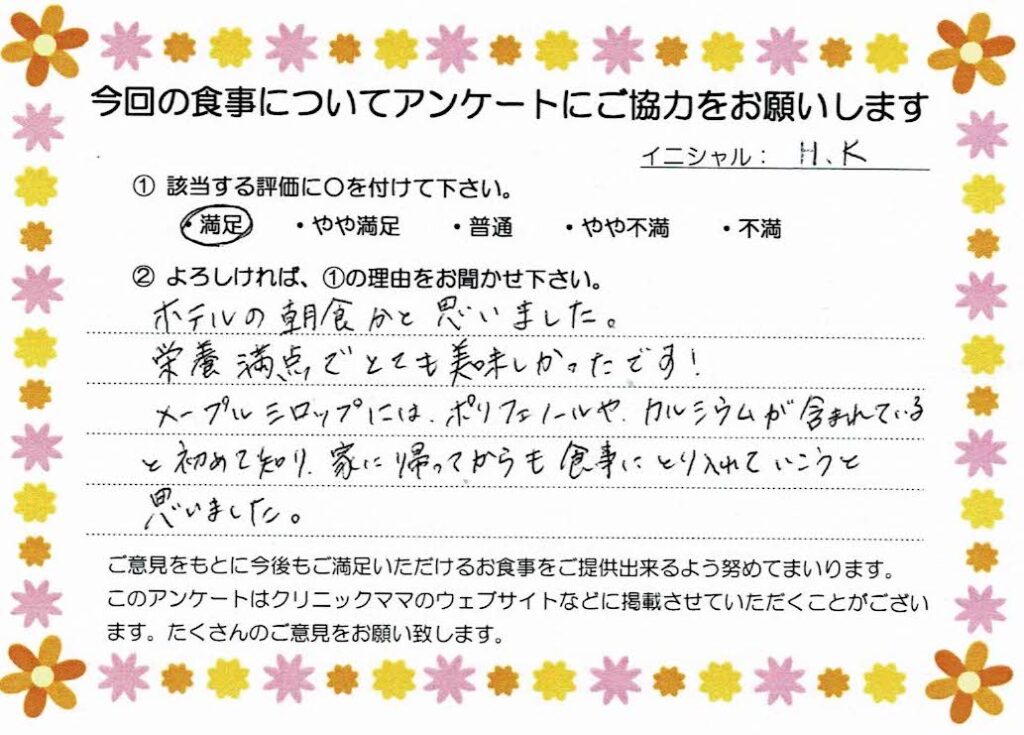 今回の食事についてアンケートにご協力をお願いします
イニシャル： H.K
① 該当する評価に〇を付けて下さい。
・満足 ・やや満足 ・普通 ・やや不満 ・不満
② よろしければ、①の理由をお聞かせ下さい。
ホテルの朝食かと思いました。
栄養満点でとても美味しかったです！
メープルシロップには、ポリフェノールや、カルシウムが含まれている
と初めて知り、家に帰ってからも食事にとり入れていこうと
思いました。
ご意見をもとに今後もご満足いただけるお食事をご提供出来るよう努めてまいります。
このアンケートはクリニックママのウェブサイトなどに掲載させていただくことがござい
ます。たくさんのご意見をお願い致します。